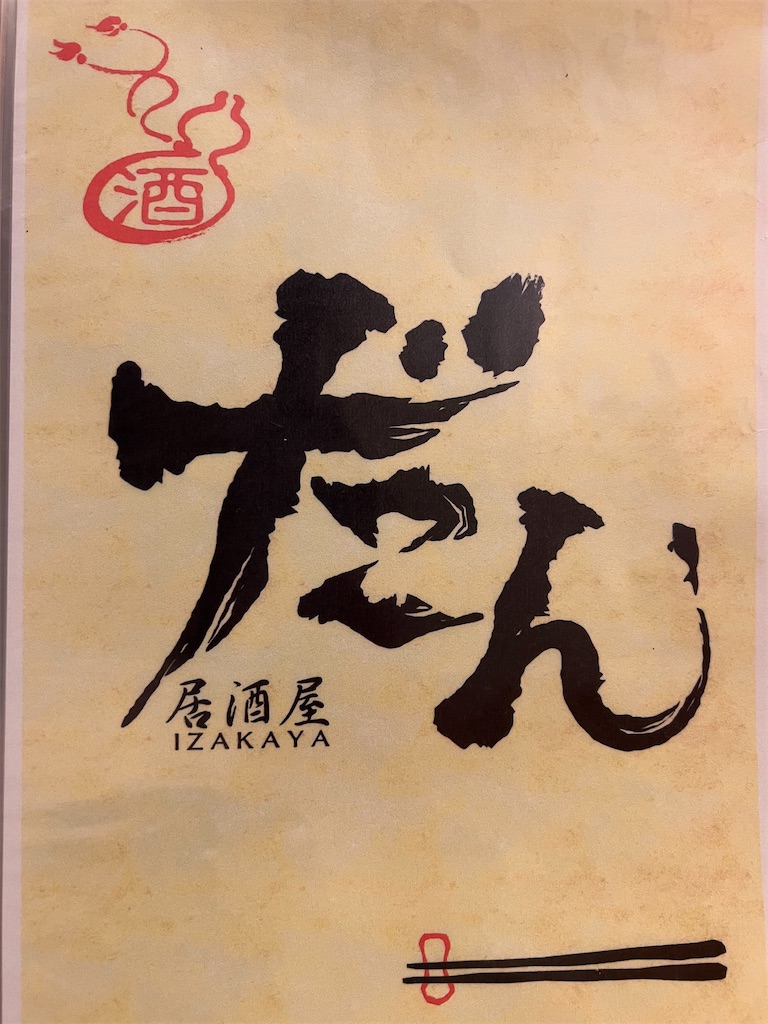 酒
だん
居酒屋
IZAKAYA